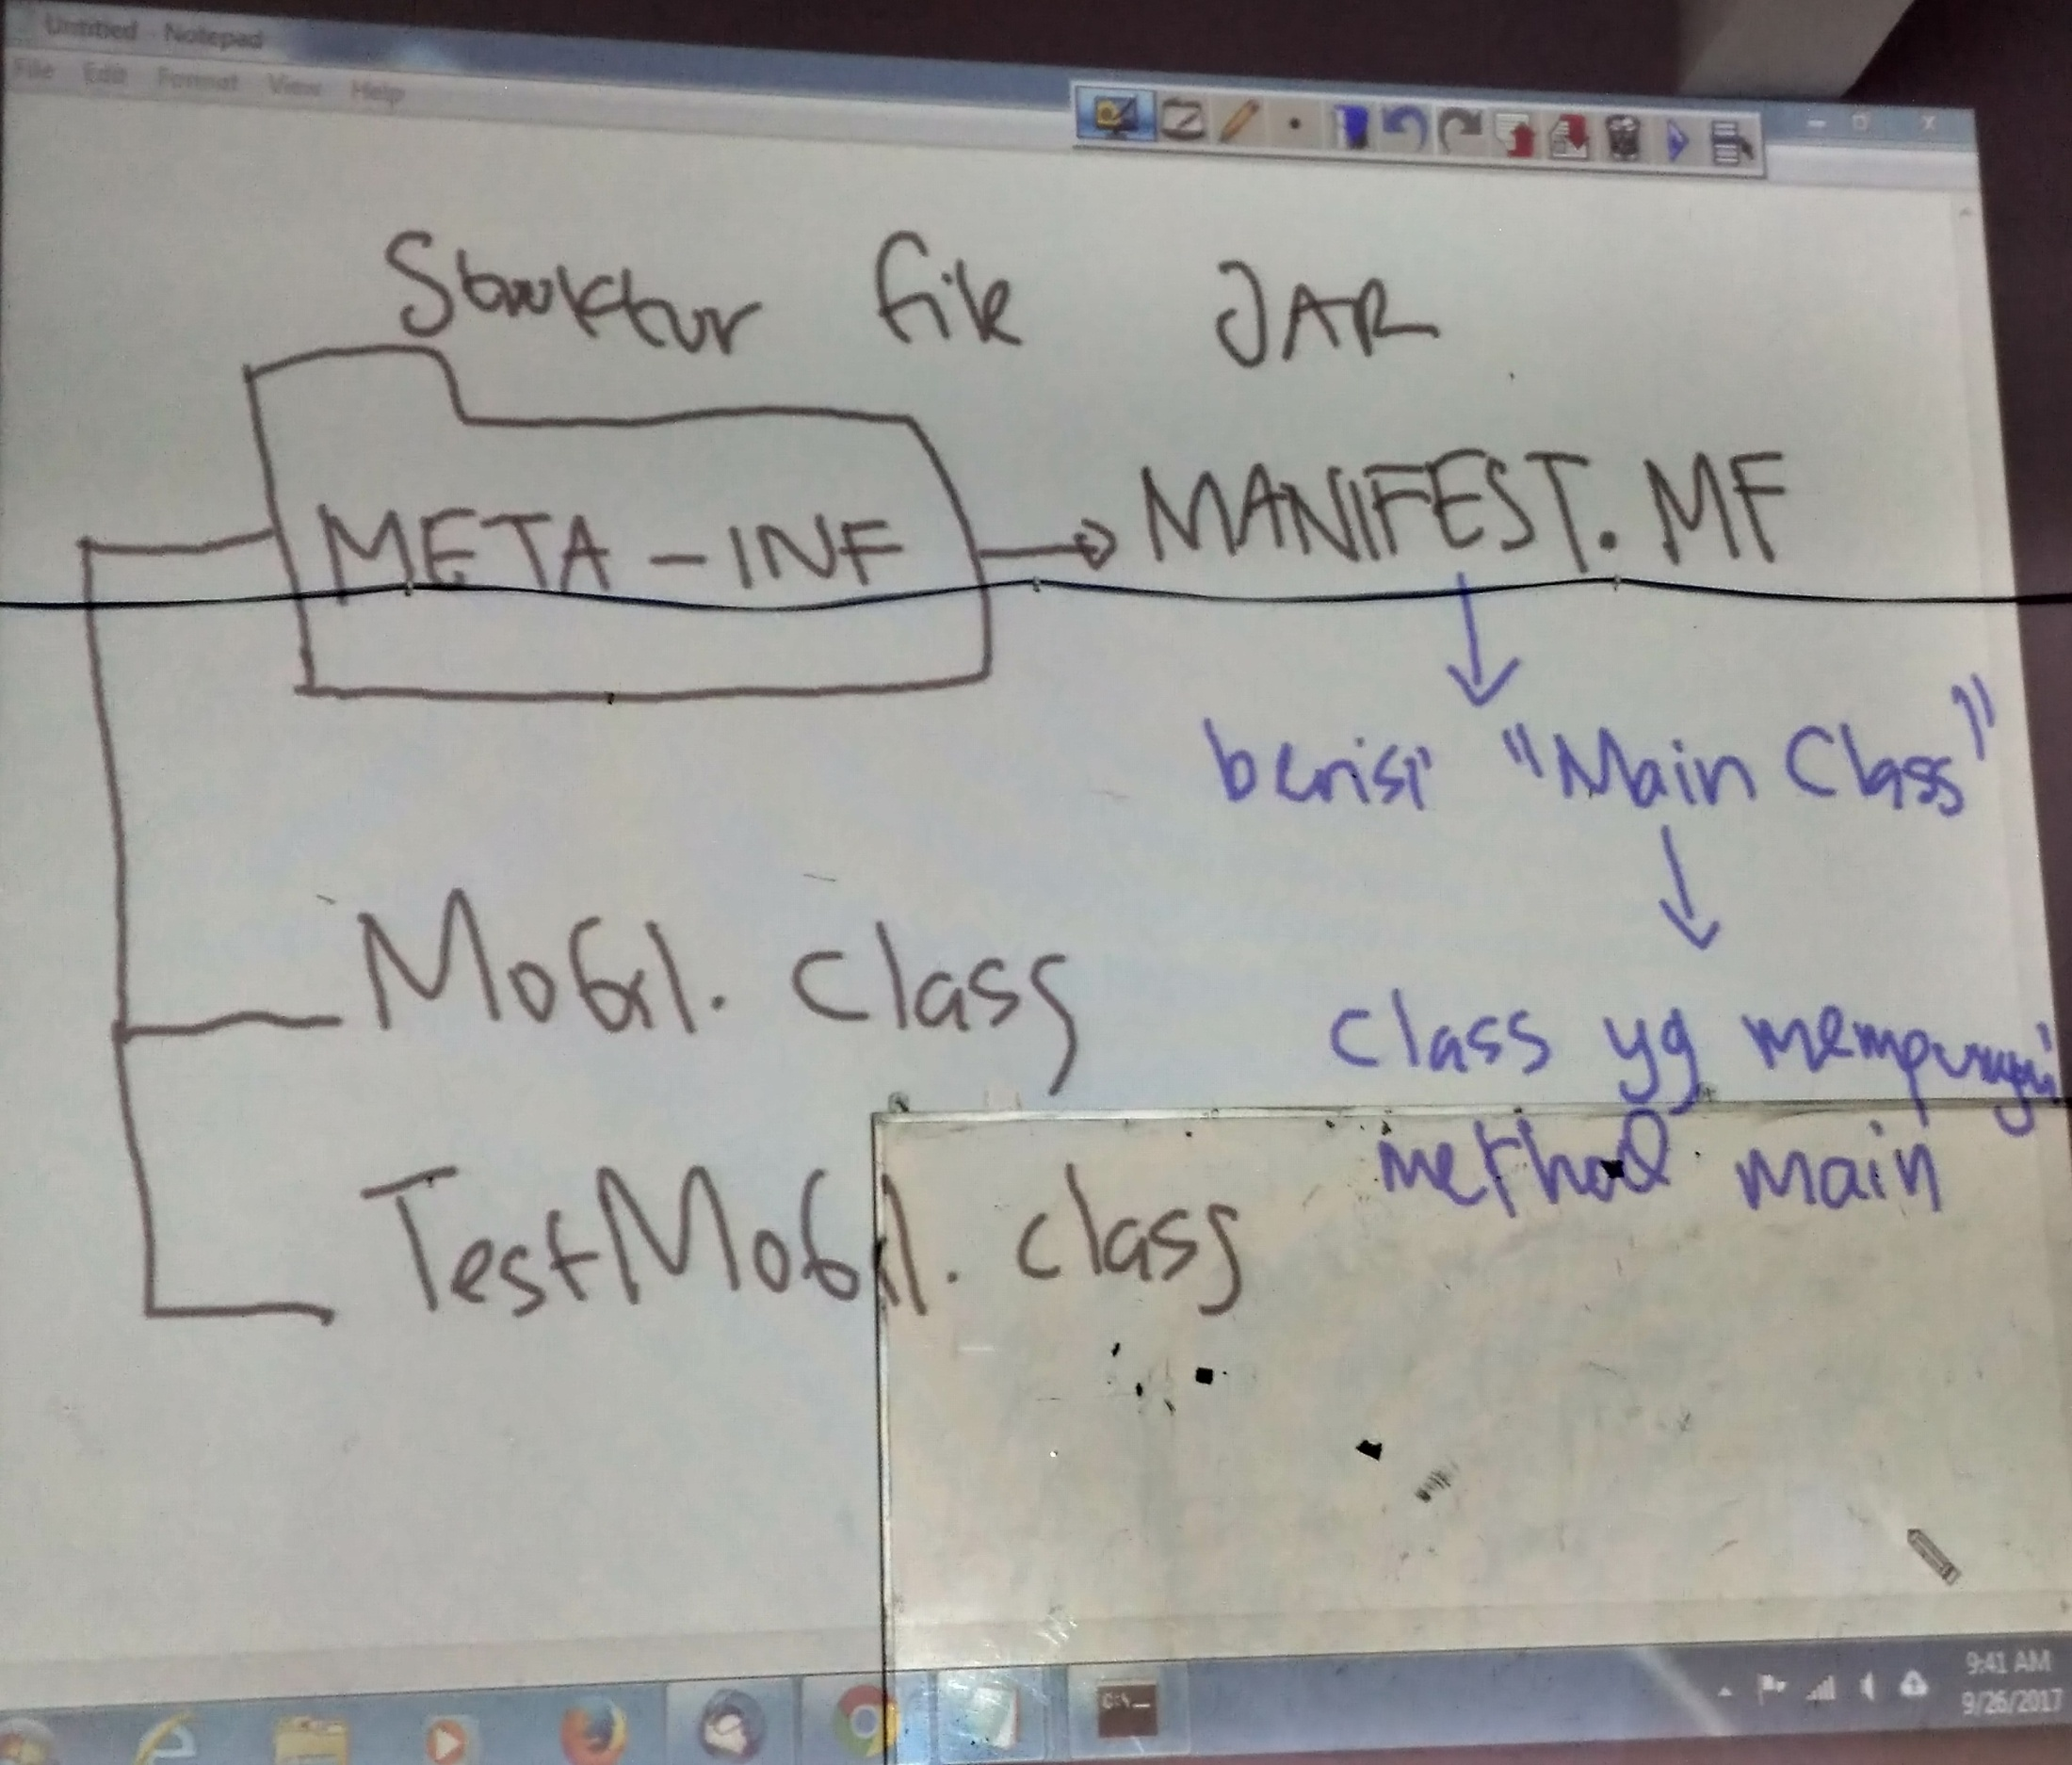 Untitled - Notepad
File Edit Format View Help
Struktur file JAR
META-INF
MANIFEST.MF
berisi "Main Class"
class yg mempunyai
method main
Mobil.class
TestMobil.class
C:\_
9:41 AM
9/26/2017